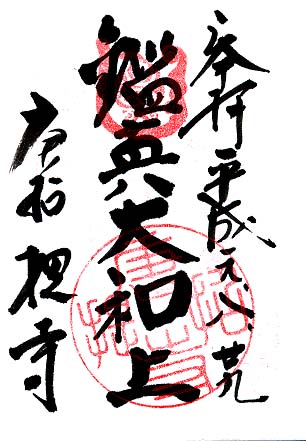 奉拝 平成元、八、廿九
鑑真大和上
唐招提寺